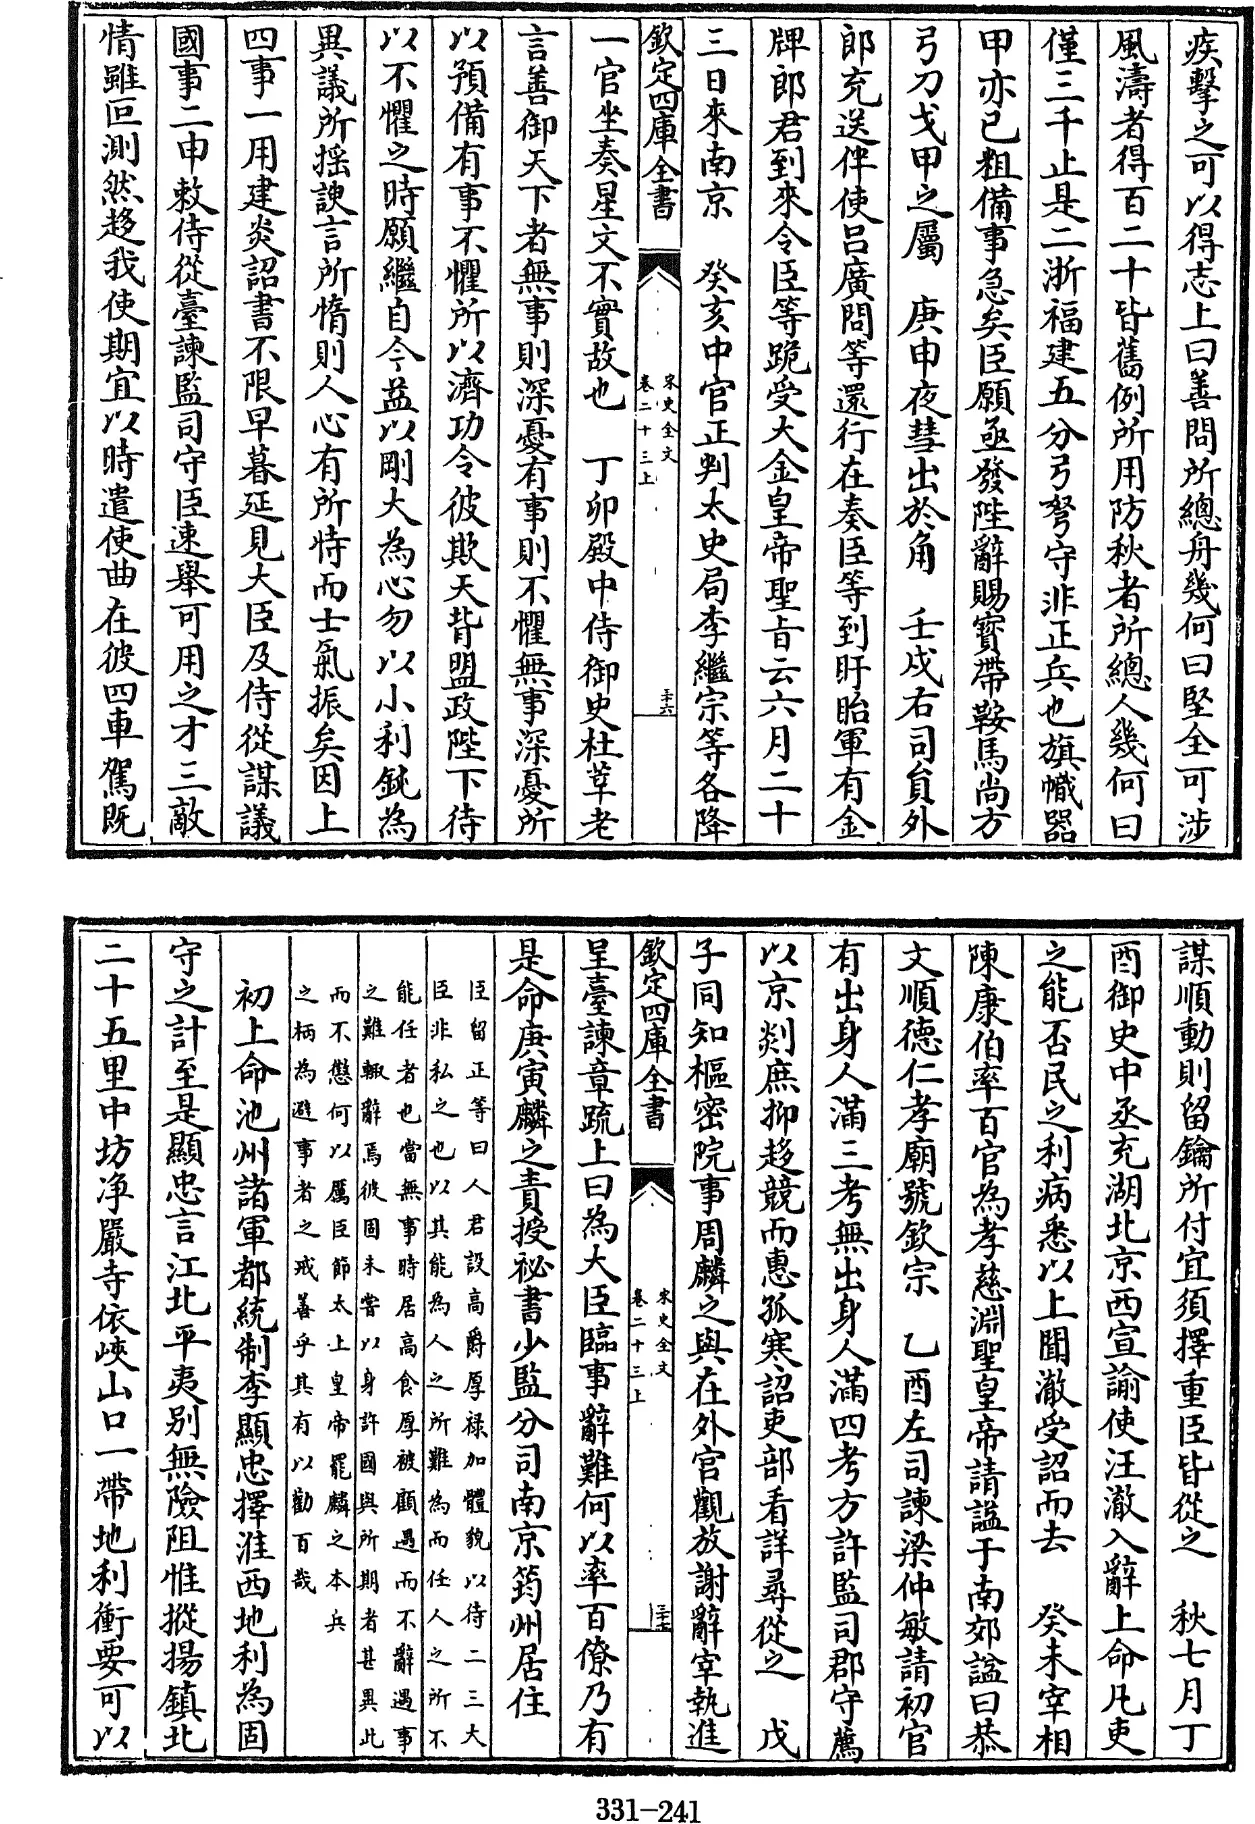 疾擊之可以得志上曰善問所總舟幾何曰堅全可涉
風濤者得百二十皆舊例所用防秋者所總人幾何曰
僅三千止是二浙福建五分弓弩守非正兵也旗幟器
甲亦已粗備事急矣臣願亟發陛辭賜寳帶鞍馬尚方
弓刀戈甲之屬　庚申夜彗出於角　壬戌右司員外
郎充送伴使呂廣問等還行在奏臣等到盱眙軍有金
牌郎君到來令臣等跪受大金皇帝聖旨云六月二十
三日來南京　癸亥中官正判太史局李繼宗等各降
欽定四庫全書
宋史全文
卷二十三上
三十六
一官坐奏星文不實故也　丁卯殿中侍御史杜莘老
言善御天下者無事則深憂有事則不懼無事深憂所
以預備有事不懼所以濟功今彼欺天背盟政陛下待
以不懼之時願繼自今益以剛大為心勿以小利鈍為
異議所揺諛言所惰則人心有所恃而士氣振矣因上
四事一用建炎詔書不限早暮延見大臣及侍從謀議
國事二申敕侍從臺諫監司守臣速舉可用之才三敵
情雖叵測然趍我使期宜以時遣使曲在彼四車駕既
謀順動則留鑰所付宜須擇重臣皆從之　秋七月丁
酉御史中丞充湖北京西宣諭使汪澈入辭上命凡吏
之能否民之利病悉以上聞澈受詔而去　癸未宰相
陳康伯率百官為孝慈淵聖皇帝請諡于南郊諡曰恭
文順德仁孝廟號欽宗　乙酉左司諫梁仲敏請初官
有出身人滿三考無出身人滿四考方許監司郡守薦
以京剡庶抑趍競而惠孤寒詔吏部看詳尋從之　戊
子同知樞密院事周麟之與在外宫觀放謝辭宰執進
欽定四庫全書
宋史全文
卷二十三上
三十七
呈臺諫章疏上曰為大臣臨事辭難何以率百僚乃有
是命庚寅麟之責授祕書少監分司南京筠州居住
臣留正等曰人君設高爵厚禄加體貌以待二三大
臣非私之也以其能為人之所難為而任人之所不
能任者也當無事時居高食厚被顧遇而不辭遇事
之難輙辭焉彼固未嘗以身許國與所期者甚異此
而不懲何以厲臣節太上皇帝罷麟之本兵
之柄為避事者之戒善乎其有以勸百哉
初上命池州諸軍都統制李顯忠擇淮西地利為固
守之計至是顯忠言江北平夷别無險阻惟摐揚鎮北
二十五里中坊净嚴寺依峽山口一帶地利衝要可以
331-241